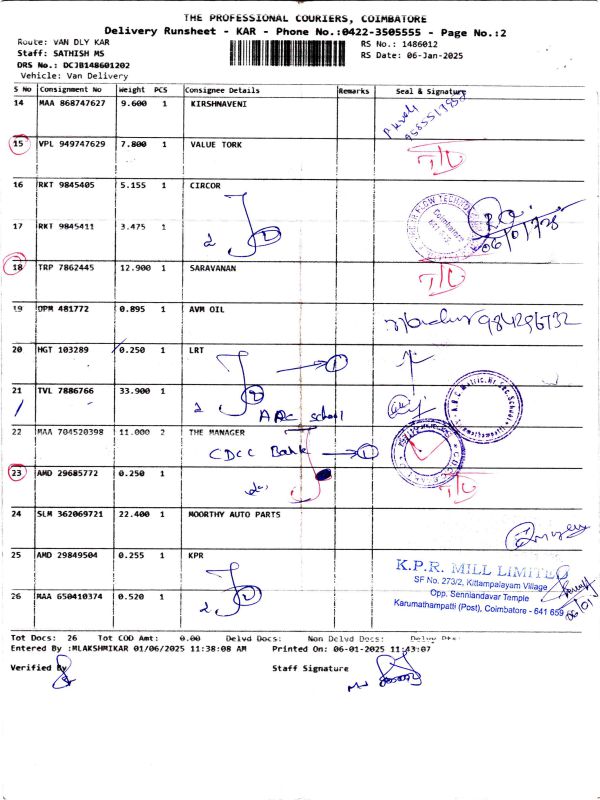 THE PROFESSIONAL COURIERS, COIMBATORE
Delivery Runsheet - KAR - Phone No.:0422-3505555 - Page No.:2
Route: VAN DLY KAR RS No.: 1486012
Staff: SATHISH MS RS Date: 06-Jan-2025
DRS No.: DCJB148601202
Vehicle: Van Delivery
S No Consignment No Weight PCS Consignee Details Remarks Seal & Signature
14 MAA 868747627 9.600 1 KIRSHNAVENI
15 VPL 949747629 7.800 1 VALUE TORK
16 RKT 9845405 5.155 1 CIRCOR
Coimbatore
17 RKT 9845411 3.475 1
2 2
18 TRP 7862445 12.900 1 SARAVANAN
19 DPM 481772 0.895 1 AVM OIL
20 HGT 103289 0.250 1 LRT
1
21 TVL 7886766 33.900 1
2 2 ARC school
22 MAA 704520398 11.000 1 THE MANAGER
CDCC Bank 1
23 AMD 29685772 0.250 1
24 SLM 362069721 22.400 1 MOORTHY AUTO PARTS
25 AMD 29849504 0.255 1 KPR
K.P.R. MILL LIMITED
SF No. 273/2, Kittampalayam Village
Opp. Senniandavar Temple
Karumathampatti (Post), Coimbatore - 641 659
26 MAA 650410374 0.520 1
2 2
Tot Docs: 26 Tot COD Amt: 0.00 Delvd Docs: Non Delvd Docs:
Entered By :MLAKSHMIKAR 01/06/2025 11:38:08 AM Printed On: 06-01-2025 11:43:07
Verified By Staff Signature